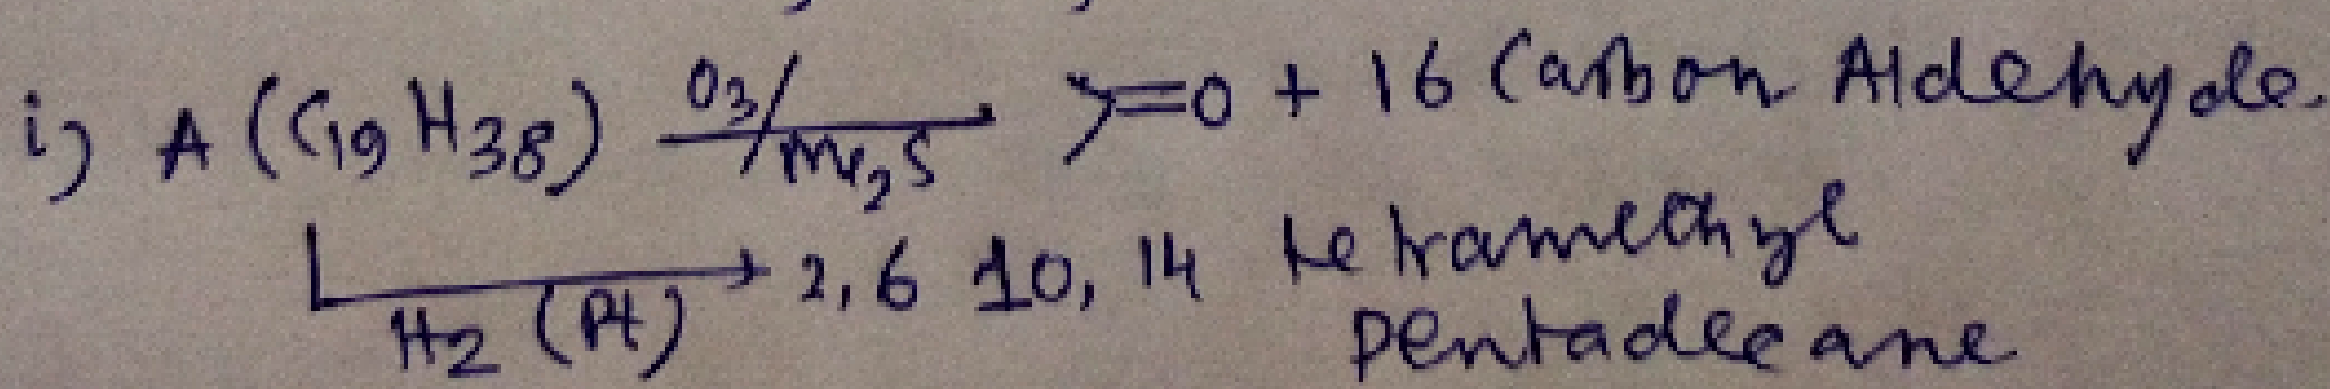 i) A (C19H38) O3/Me2S >=O + 16 Carbon Aldehyde.
H2 (Pt) → 2, 6 10, 14 tetramethyl
pentadecane